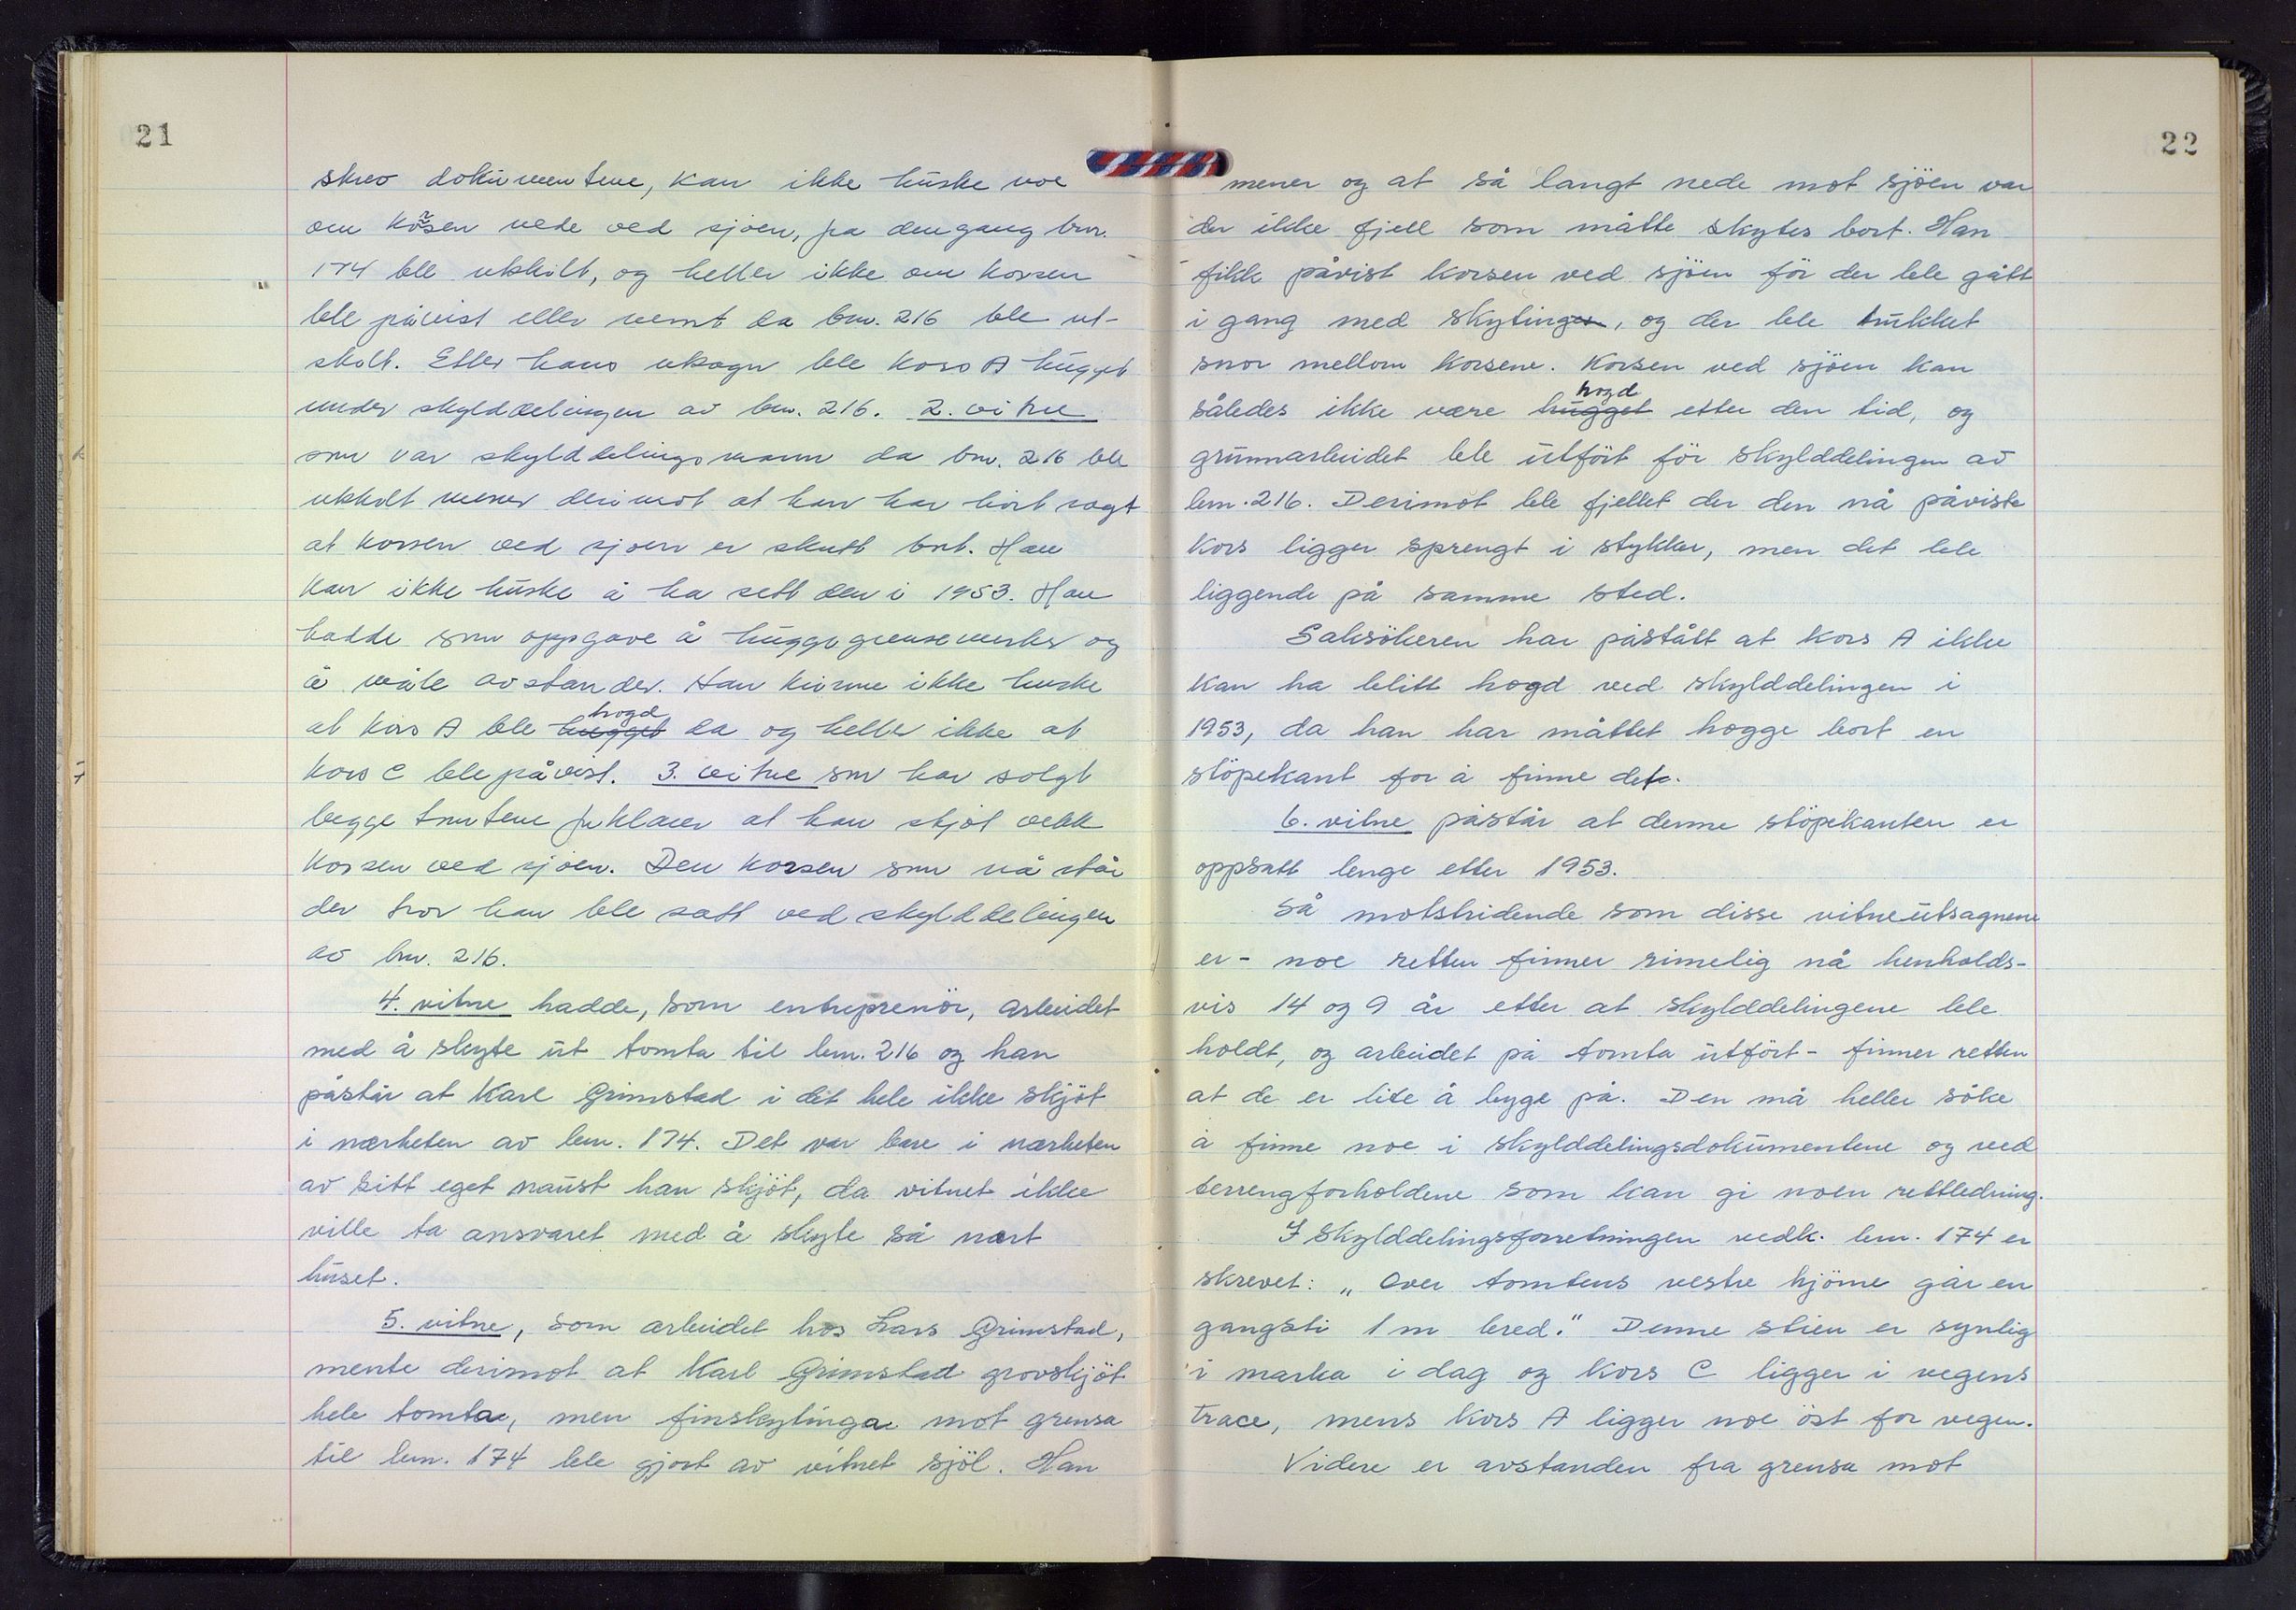 21
skrev dokumentene, kan ikke huske noe
om korsen nede ved sjøen, fra dengang bnr.
174 ble utskilt, og heller ikke om korsen
ble påvist eller nemt da bnr. 216 ble ut-
skilt. Etter hans utsagn ble kors A hugget
under skylddelingen av bnr. 216. 2. vitne
som var skylddelingsmann da bnr. 216 ble
utskilt mener derimot at han har hört sagt
at korsen ved sjøen er skutt bort. Han
kan ikke huske å ha sett den i 1953. Han
hadde som oppgave å hugge grensemerker og
å måle avstander. Han kunne ikke huske
at kors A ble hugget hogd da og heller ikke at
kors C ble påvist. 3. vitne som har solgt
begge tomtene forklarer at han skjöt vekk
korsen ved sjøen. Den korsen som nå står
der tror han ble satt ved skylddelingen
av bnr. 216.
4. vitne hadde, som entreprenör, arbeidet
med å skyte ut tomta til bnr. 216 og han
påstår at Karl Grimstad i det hele ikke skjöt
i nærheten av bnr. 174. Det var bare i nærheten
av sitt eget naust han skjöt, da vitnet ikke
ville ta ansvaret med å skyte så nært
huset.
5. vitne, som arbeidet hos Lars Grimstad,
mente derimot at Karl Grimstad grovskjöt
hele tomta, men finskytinga mot grensa
til bnr. 174 ble gjort av vitnet sjöl. Han
22
mener og at så langt nede mot sjöen var
der ikke fjell som måtte skytes bort. Han
fikk påvist korsen ved sjöen för der ble gått
i gang med skytingen, og der ble trukket
snor mellom korsene. Korsen ved sjöen kan
således ikke være hugget hogd etter den tid, og
grunnarbeidet ble utfört för skylddelingen av
bnr. 216. Derimot ble fjellet der den nå påviste
kors ligger sprengt i stykker, men det ble
liggende på samme sted.
Saksökeren har påstått at kors A ikke
kan ha blitt hogd ved skylddelingen i
1953, da han har måttet hogge bort en
stöpekant for å finne det.
6. vitne påstår at denne stöpekanten er
oppsatt lenge etter 1953.
Så motstridende som disse vitneutsagnene
er - noe retten finner rimelig nå henholds-
vis 14 og 9 år etter at skylddelingene ble
holdt, og arbeidet på tomta utfört - finner retten
at de er lite å bygge på. Den må heller söke
å finne noe i skylddelingsdokumentene og ved
terrengforholdene som kan gi noen rettledning.
I skylddelingsforretningen vedk. bnr. 174 er
skrevet: „Over tomtens vestre hjörne går en
gangsti 1 m bred." Denne stien er synlig
i marka i dag og kors C ligger i vegens
trace, mens kors A ligger noe öst for vegen.
Videre er avstanden fra grensa mot